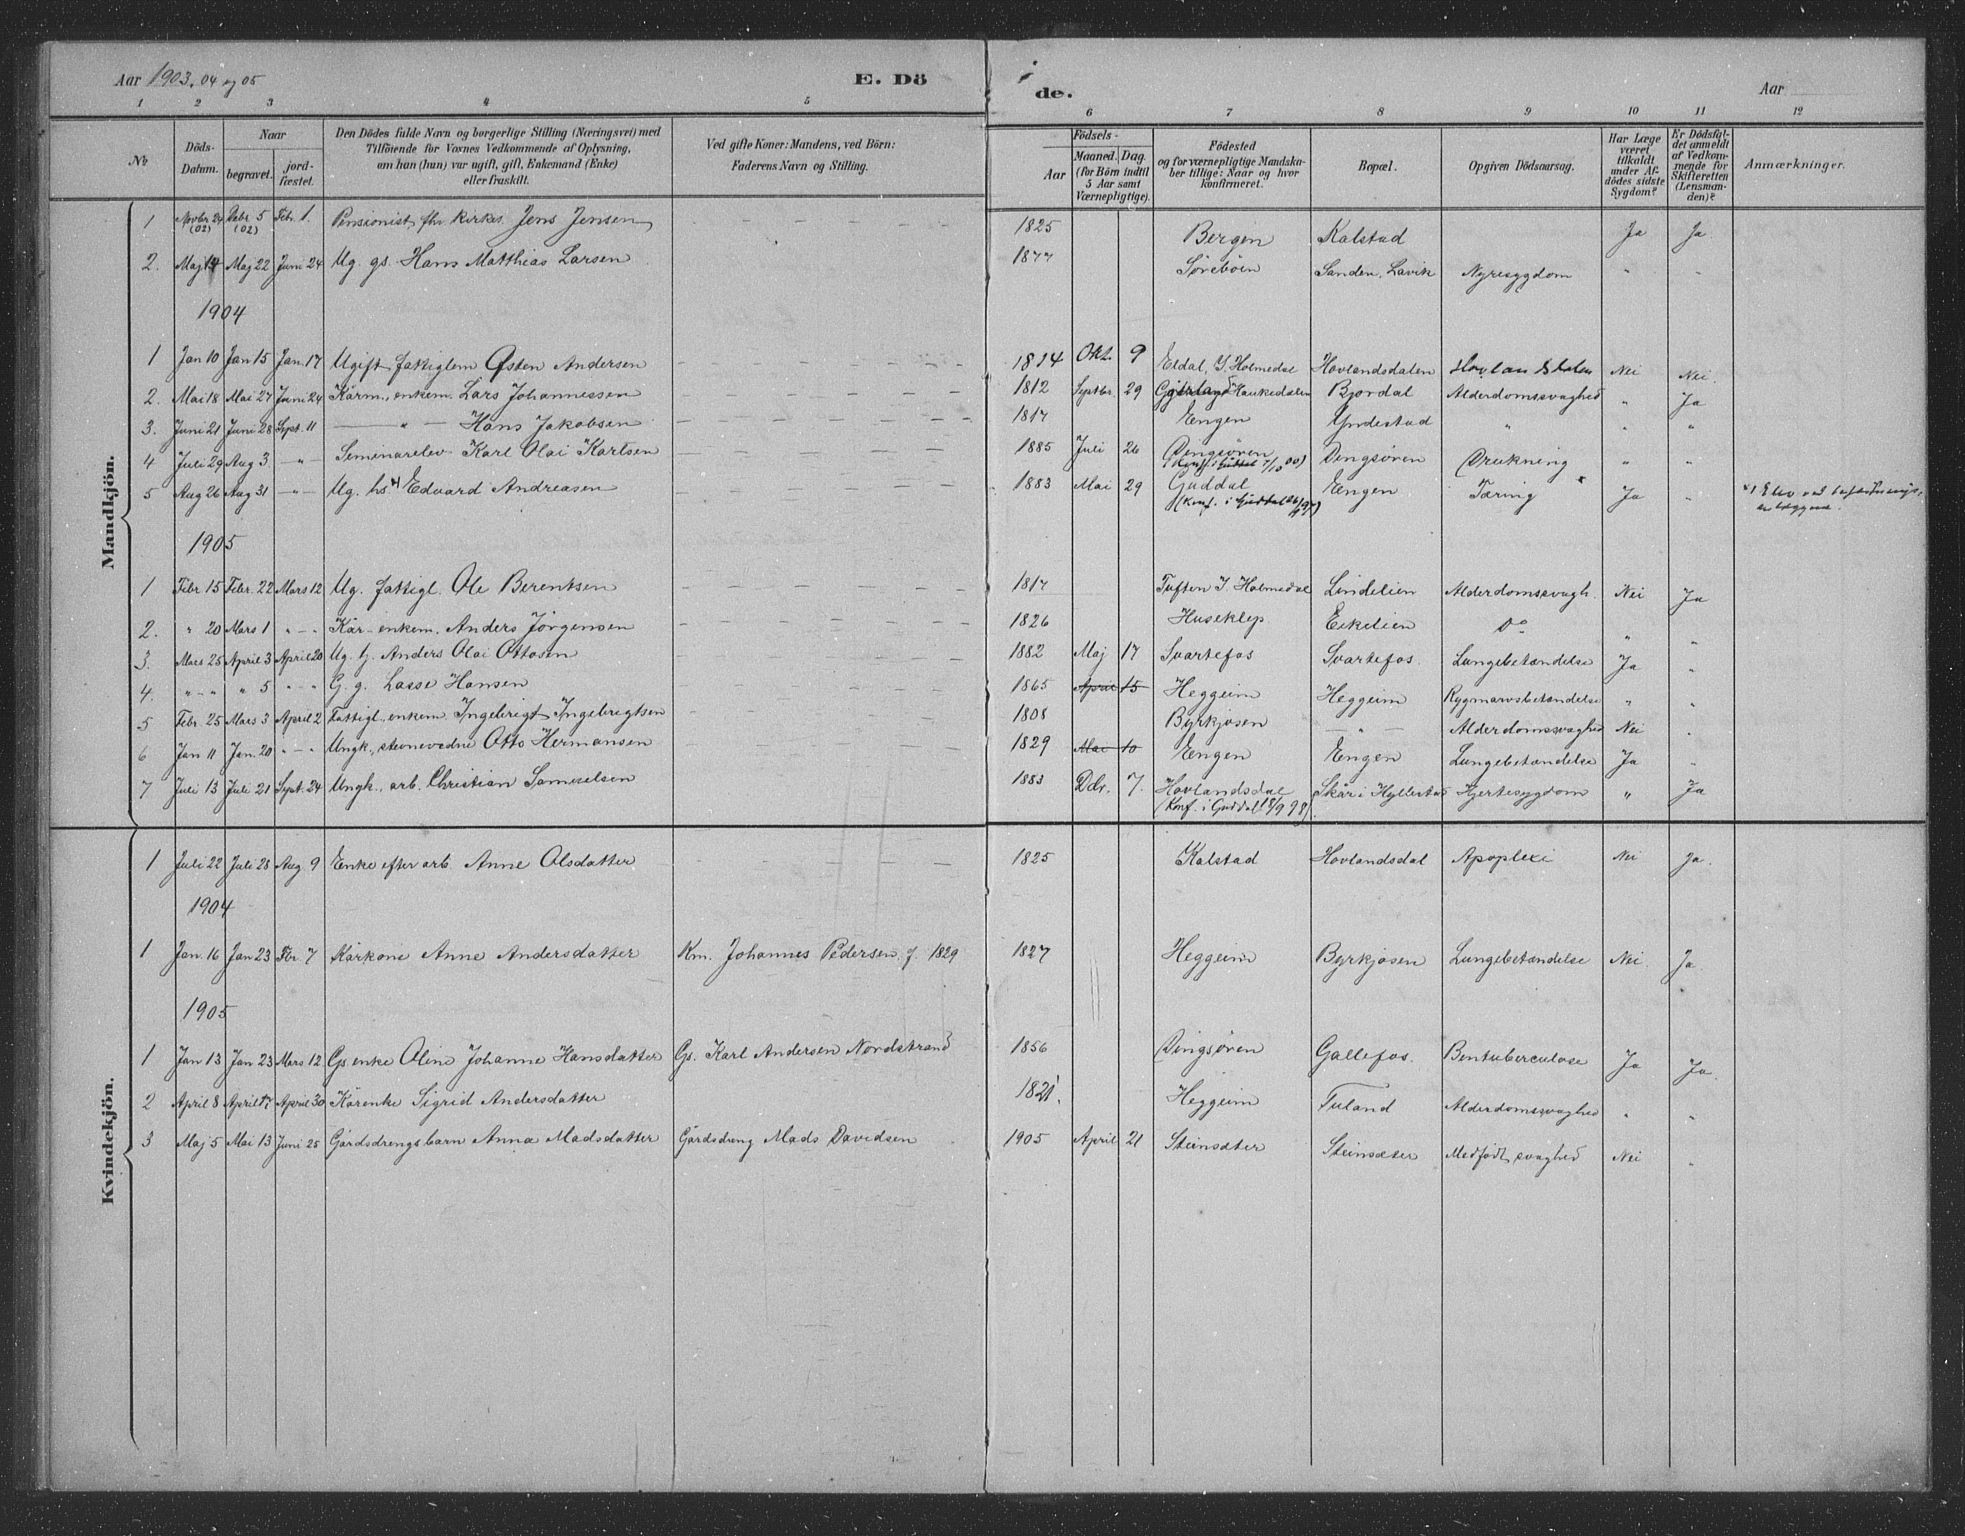 Aar 1903, 04 og 05 E. Dö de. Aar
1 2 3 4 5 6 7 8 9 10 11 12
No
Döds-Datum.
Naar
begravet.
jord-fæstet.
Den Dödes fulde Navn og borgerlige Stilling (Næringsvei) med
Tilföiende for Voxnes Vedkommende af Oplysning,
om han (hun) var ugift, gift, Enkemand (Enke)
eller fraskilt.
Ved gifte Koner: Mandens, ved Börn:
Faderens Navn og Stilling.
Födsels-
Aar
Maaned. Dag.
(for Börn indtil
5 Aar samt
Værnepligtige).
Födested
og for værnepligtige Mandska-
ber tillige: Naar og hvor
konfirmeret.
Bopæl.
Opgiven Dödsaarsag.
Har Læge
været
tilkaldt
under Af-
dödes sidste
Sygdom?
Er Dödsfal-
det anmeldt
af Vedkom-
mende for
Skifteretten
(Lensman-
den)?
Anmærkninger.
Mandkjön.
1 Novbr 24 (02) Debr 5 (02) Febr. 1. Pensionist, fhv. kirkes. Jens Jensen 1825 Bergen Kalstad Ja Ja
2. Maj 14 Maj 22 Juni 24 Ug. gs. Hans Matthias Larsen 1877 Sörebøen Sanden, Lavik Nyresygdom " "
1904
1 Jan 10 Jan 15 Jan. 17 Ugift fattiglem Østen Andersen 1814 Okt. 9 Eldal, Y. Holmedal Hovlandsdalen Nei Nei.
2. Mai 18 Mai 27 Juni 24 Kårm., enkem. Lars Johannessen 1812 Septbr. 29 Haukedalen Bjordal Alderdomssvaghed " Ja
3. Juni 21 Juni 28 Sept. 11 — " — Hans Jakobsen 1817 Engen Yndestad " " "
4 Juli 29 Aug 3 — " Seminarelev Karl Olai Karlsen 1885 Juli 26 Dingsøren Dingsøren Drukning " "
(Konf. i Guddal 7/10 00)
5 Aug 26 Aug 31 — " — Ug. hs Edvard Andreasen 1883 Mai 29 Guddal Engen Tæring Ja "
(Konf. i Guddal
1905
1 Febr 15 Febr. 22 Mars 12 Ug. fattigl. Ole Berentsen 1817 Tuften Y. Holmedal Lindelien Alderdomssvagh. Nei Ja
2. " 20 Mars 1 " — " Kår-enkem. Anders Jörgensen 1826 Huseklep Eikelien Do " "
3. Mars 25 April 3 April 20 Ug. hj. Anders Olai Ottosen 1882 Maj 17 Svartefos Svartefos. Lungebetændelse Ja "
4. " — " " 5 " — " G. g. Lasse Hansen 1865 April 15 Heggeim Heggeim Rygmarvsbetændelse " "
5 Febr. 25 Mars 3 April 2 Fattigl., enkem. Ingebrigt Ingebrigtsen 1808 Byrkjosen — " — Alderdomssvaghed Nei "
6 Jan 11 Jan. 20 " — " Ungk., Otto Hermansen 1829 Mai 10 Engen Engen Lungebetændelse Ja "
7 Juli 13 Juli 21 Sept. 24 Ungk., arb. Christian Samuelsen 1883 Dcbr. 7. Hovlandsdal Skår i Hyllestad Hjertesygdom " Ja
(Konf. i Guddal 18/9 98)
Kvindekjön.
1 Juli 22 Juli 28 Aug 9 Enke efter arb. Anne Olsdatter 1825 Kalstad Hovlandsdal Apoplexi Nei Ja.
1904
1 Jan. 16 Jan 23 Fbr. 7 Kårkone Anne Andersdatter Km. Johannes Pedersen f. 1829 1827 Heggeim Byrkjosen Lungebetændelse Nei Ja.
1905
1 Jan 13 Jan 23 Mars 12 Gs. enke Oline Johanne Hansdatter Gs. Karl Andersen Nordstrand 1856 Dingsøren Gallefos. Bentuberculose Ja Ja.
2 April 8 April 17 April 30 Kårenke Sigrid Andersdatter 1821. Heggeim Fuland Alderdomssvaghed " "
3 Maj 5 Mai 13 Juni 25 Gårdsdrengsbarn Anna Madsdatter Gårdsdreng Mads Davidsen 1905 April 21 Steinsæter Steinsæter Medfødt svaghed Nei "